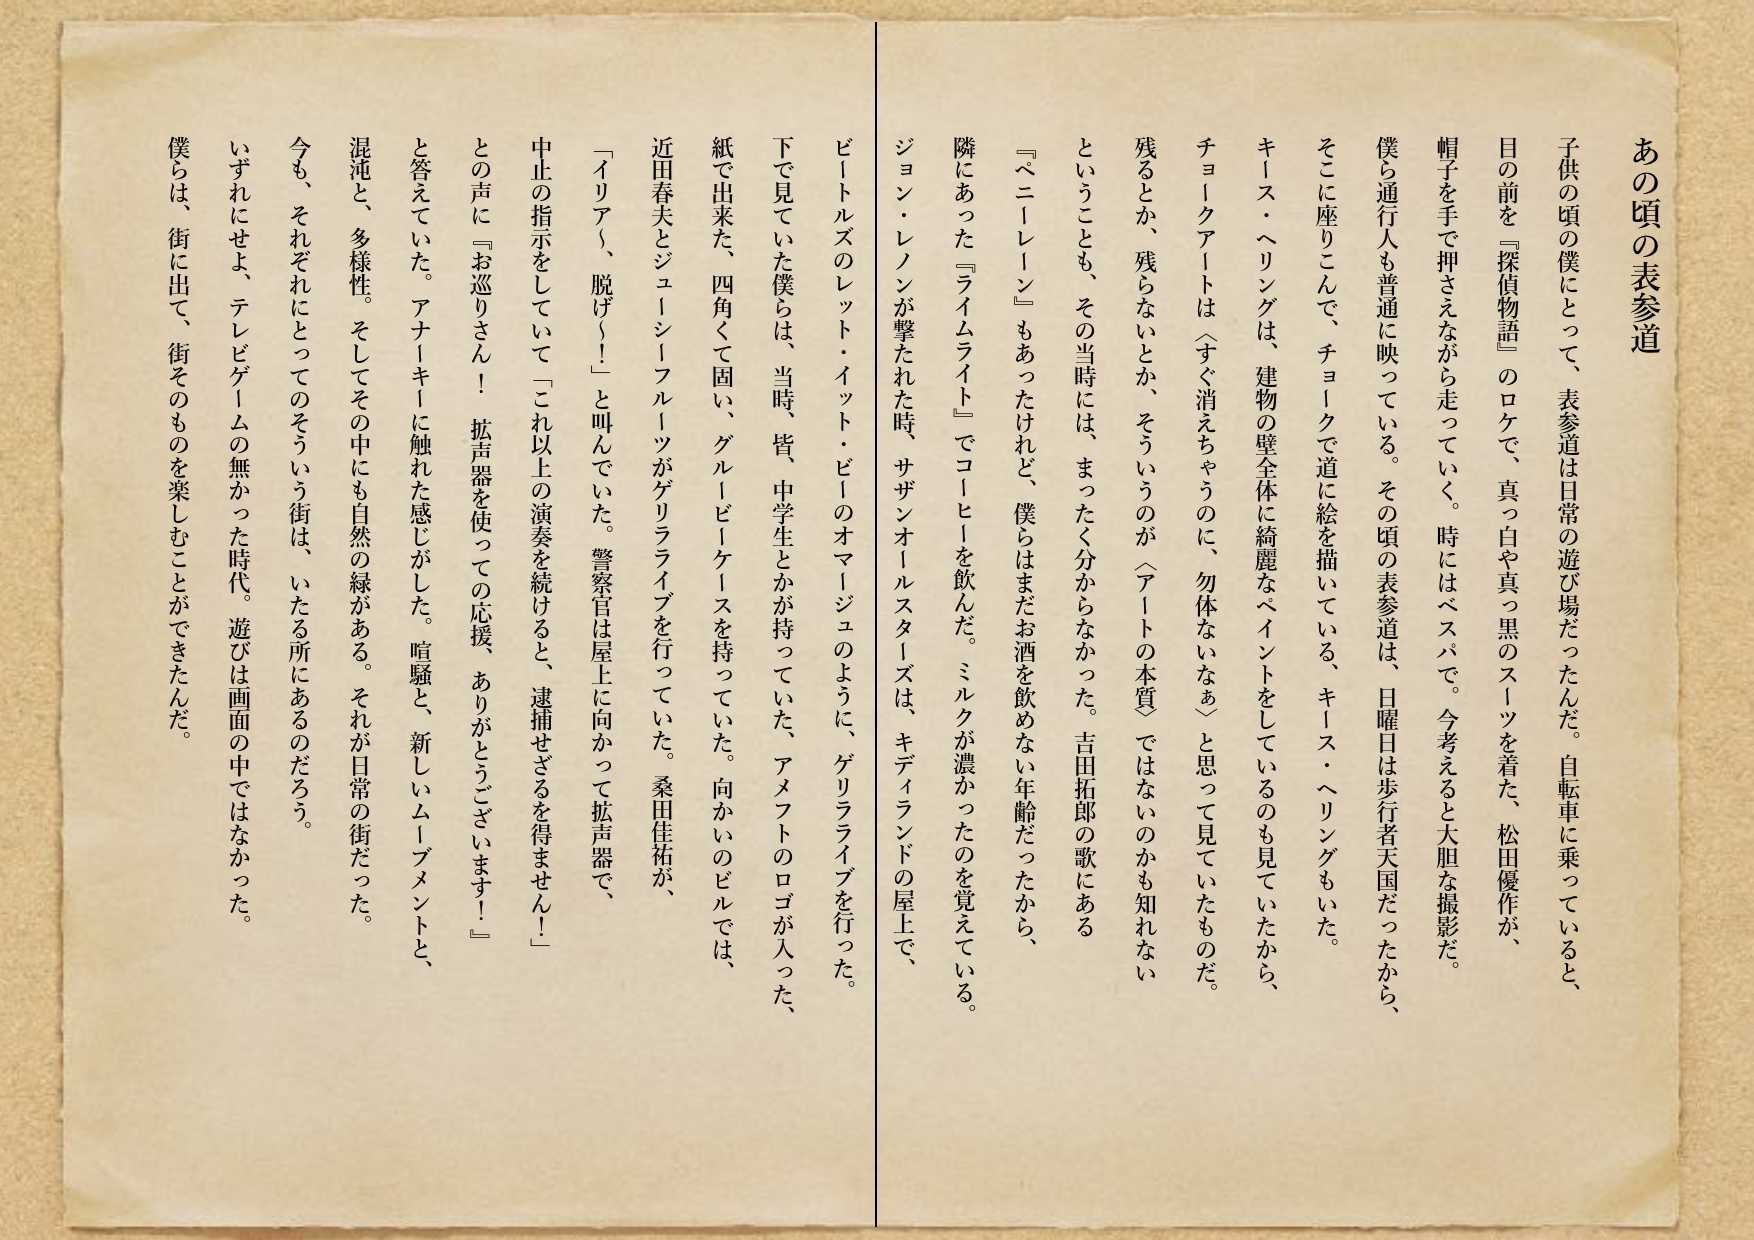 あの頃の表参道
子供の頃の僕にとって、表参道は日常の遊び場だったんだ。自転車に乗っていると、
目の前を『探偵物語』のロケで、真っ白や真っ黒のスーツを着た、松田優作が、
帽子を手で押さえながら走っていく。時にはベスパで。今考えると大胆な撮影だ。
僕ら通行人も普通に映っている。その頃の表参道は、日曜日は歩行者天国だったから、
そこに座りこんで、チョークで道に絵を描いている、キース・ヘリングもいた。
キース・ヘリングは、建物の壁全体に綺麗なペイントをしているのも見ていたから、
チョークアートは〈すぐ消えちゃうのに、勿体ないなぁ〉と思って見ていたものだ。
残るとか、残らないとか、そういうのが〈アートの本質〉ではないのかも知れない
ということも、その当時には、まったく分からなかった。吉田拓郎の歌にある
『ペニーレーン』もあったけれど、僕らはまだお酒を飲めない年齢だったから、
隣にあった『ライムライト』でコーヒーを飲んだ。ミルクが濃かったのを覚えている。
ジョン・レノンが撃たれた時、サザンオールスターズは、キディランドの屋上で、
ビートルズのレット・イット・ビーのオマージュのように、ゲリラライブを行った。
下で見ていた僕らは、当時、皆、中学生とかが持っていた、アメフトのロゴが入った、
紙で出来た、四角くて固い、グルービーケースを持っていた。向かいのビルでは、
近田春夫とジューシーフルーツがゲリラライブを行っていた。桑田佳祐が、
「イリア〜、脱げ〜！」と叫んでいた。警察官は屋上に向かって拡声器で、
中止の指示をしていて「これ以上の演奏を続けると、逮捕せざるを得ません！」
との声に『お巡りさん！　拡声器を使っての応援、ありがとうございます！』
と答えていた。アナーキーに触れた感じがした。喧騒と、新しいムーブメントと、
混沌と、多様性。そしてその中にも自然の緑がある。それが日常の街だった。
今も、それぞれにとってのそういう街は、いたる所にあるのだろう。
いずれにせよ、テレビゲームの無かった時代。遊びは画面の中ではなかった。
僕らは、街に出て、街そのものを楽しむことができたんだ。